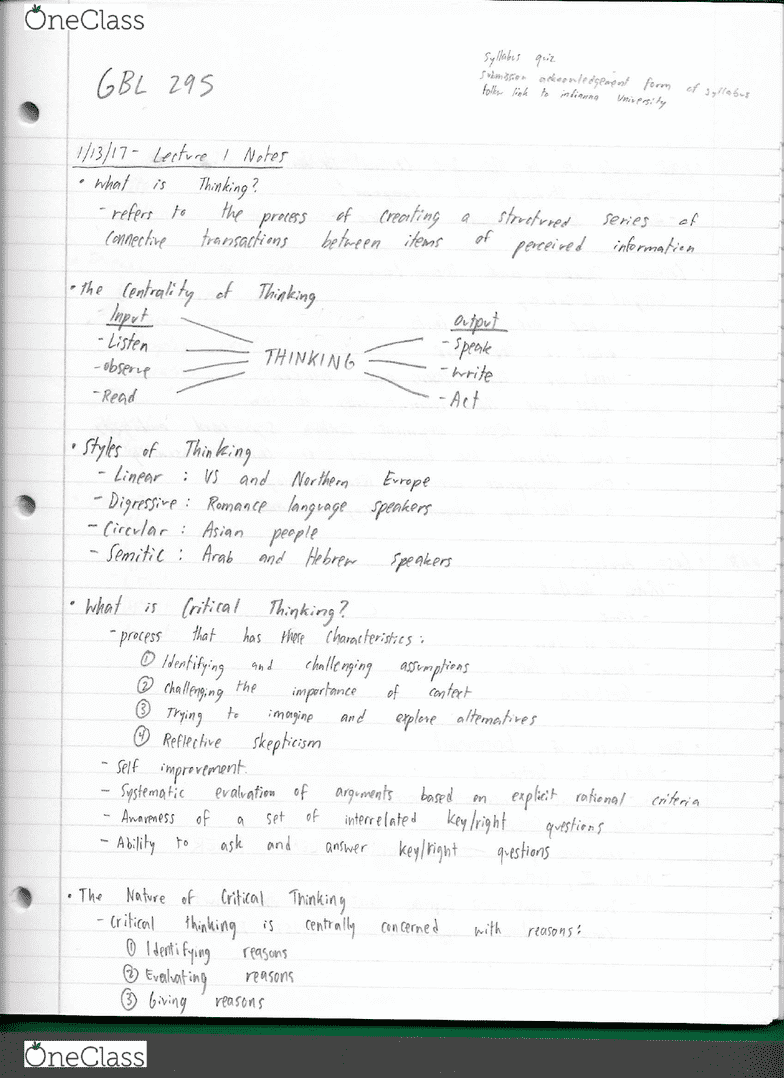 OneClass
syllabus quiz
submission acknowledgement form of syllabus
follow link to indianna University
GBL 295
1/13/17 - Lecture 1 Notes
• What is Thinking?
- refers to the process of creating a structured series of
connective transactions between items of perceived information
• the Centrality of Thinking
Input
- Listen
- observe
- Read
THINKING
Output
- Speak
- write
- Act
• Styles of Thinking
- Linear : US and Northern Europe
- Digressive : Romance language speakers
- Circular : Asian people
- Semitic : Arab and Hebrew speakers
• What is Critical Thinking?
- process that has these characteristics :
① Identifying and challenging assumptions
② Challenging the importance of context
③ Trying to imagine and explore alternatives
④ Reflective skepticism
- Self improvement
- Systematic evaluation of arguments based on explicit rational criteria
- Awareness of a set of interrelated key/right questions
- Ability to ask and answer key/right questions
• The Nature of Critical Thinking
- Critical thinking is centrally concerned with reasons :
① Identifying reasons
② Evaluating reasons
③ Giving reasons
OneClass